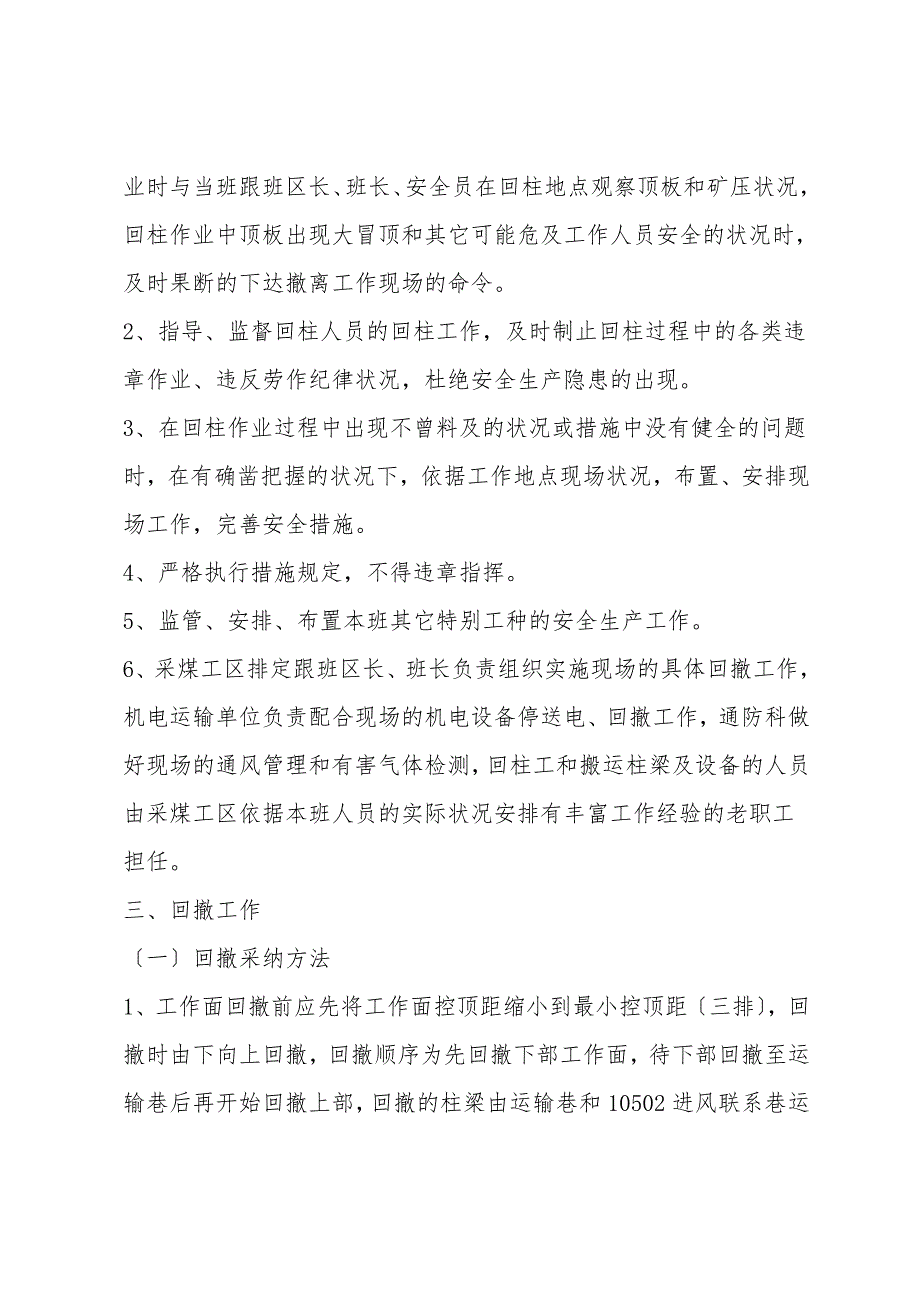 业时与当班跟班区长、班长、安全员在回柱地点观察顶板和矿压状况，
回柱作业中顶板出现大冒顶和其它可能危及工作人员安全的状况时，
及时果断的下达撤离工作现场的命令。
2、指导、监督回柱人员的回柱工作，及时制止回柱过程中的各类违
章作业、违反劳作纪律状况，杜绝安全生产隐患的出现。
3、在回柱作业过程中出现不曾料及的状况或措施中没有健全的问题
时，在有确凿把握的状况下，依据工作地点现场状况，布置、安排现
场工作，完善安全措施。
4、严格执行措施规定，不得违章指挥。
5、监管、安排、布置本班其它特别工种的安全生产工作。
6、采煤工区排定跟班区长、班长负责组织实施现场的具体回撤工作，
机电运输单位负责配合现场的机电设备停送电、回撤工作，通防科做
好现场的通风管理和有害气体检测，回柱工和搬运柱梁及设备的人员
由采煤工区依据本班人员的实际状况安排有丰富工作经验的老职工
担任。
三、回撤工作
〔一〕回撤采纳方法
1、工作面回撤前应先将工作面控顶距缩小到最小控顶距〔三排〕，回
撤时由下向上回撤，回撤顺序为先回撤下部工作面，待下部回撤至运
输巷后再开始回撤上部，回撤的柱梁由运输巷和 10502 进风联系巷运